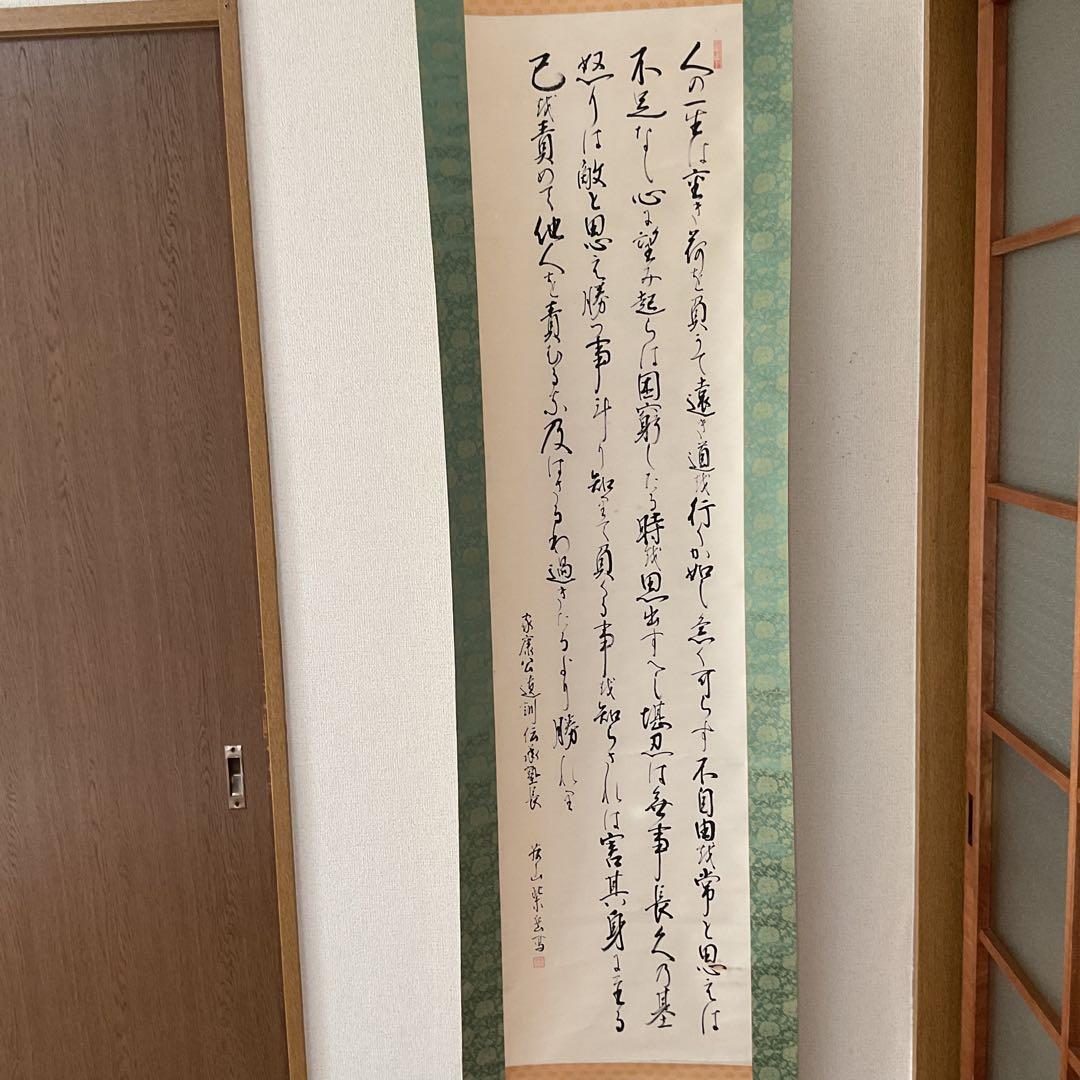 人の一生は重き荷を負うて遠き道越行くか如し急く可らす不自由越常と思えは
不足なし心に望み起らは困窮したる時越思出すへし堪忍は無事長久乃基
怒りは敵と思え勝つ事斗り知りて負くる事越知らされは害其身に至る
己越責めて他人を責むるな及はさるわ過きたるより勝れり
家康公遺訓伝承塾長
山 岳写